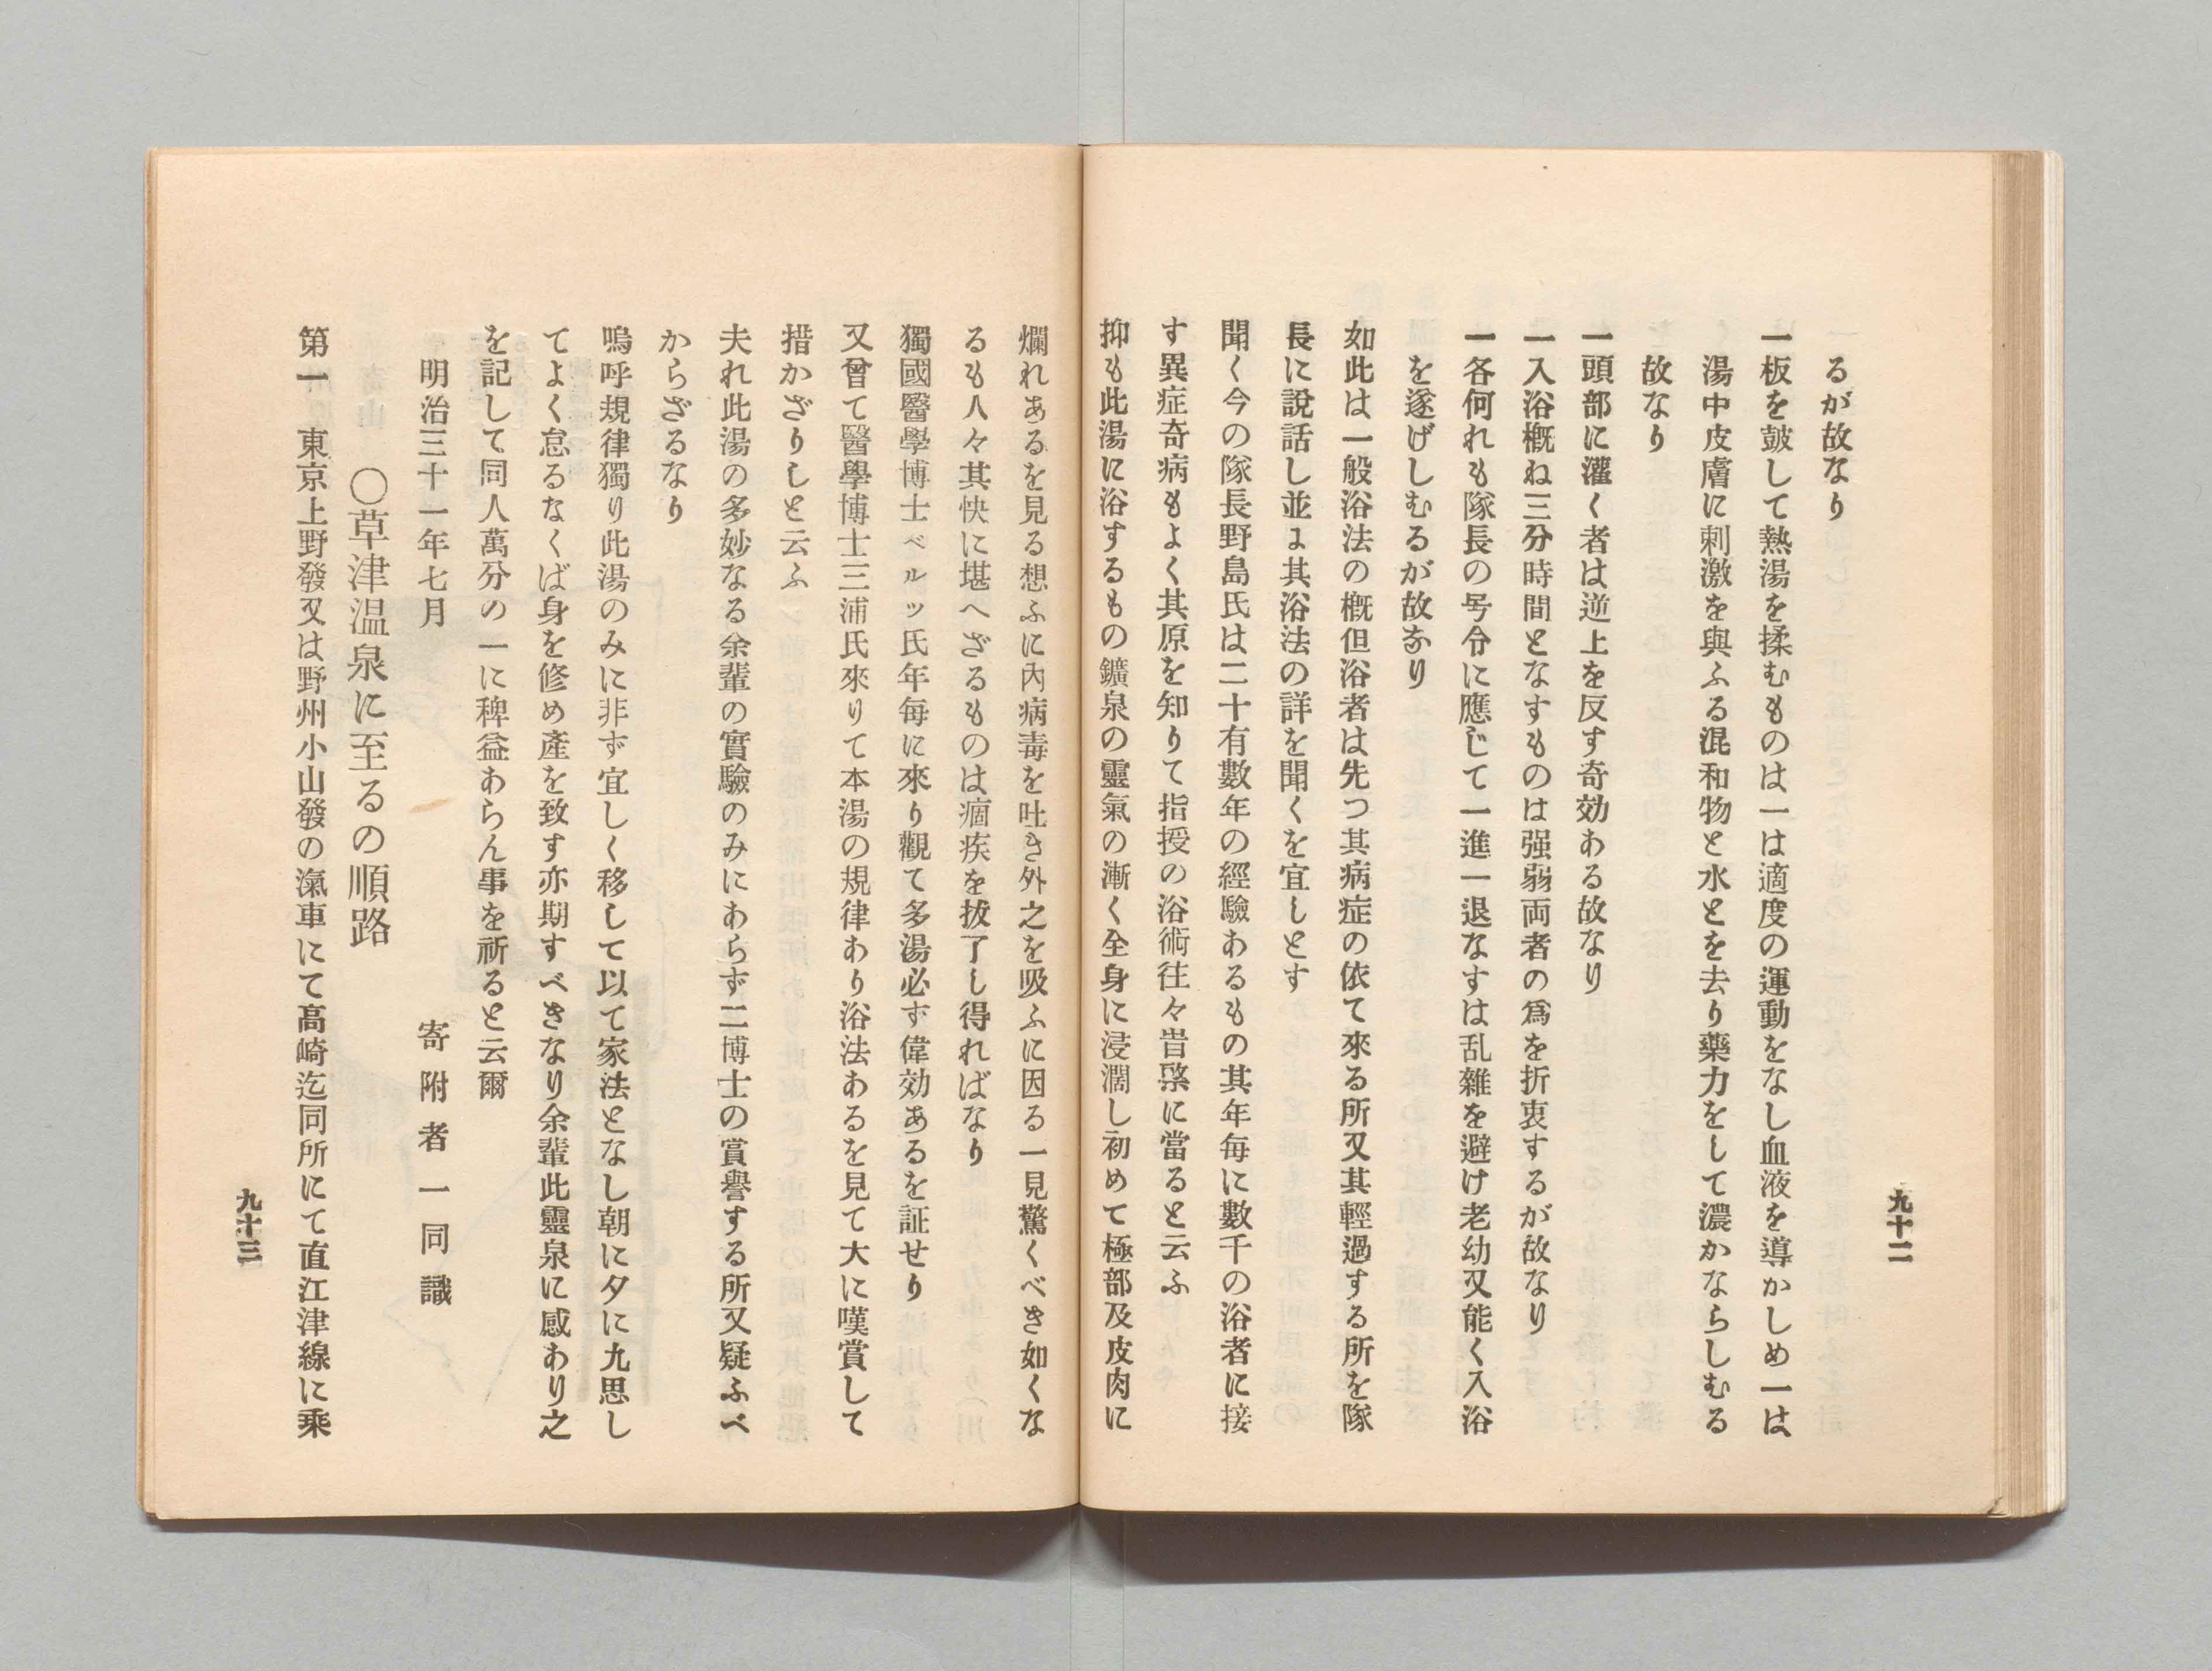 九十二
るが故なり
一板を皷して熱湯を揉むものは一は適度の運動をなし血液を導かしめ一は
湯中皮膚に刺激を與ふる混和物と水とを去り藥力をして濃かならしむる
故なり
一頭部に灌く者は逆上を反す奇効ある故なり
一入浴槪ね三分時間となすものは强弱両者の爲を折衷するが故なり
一各何れも隊長の号令に應じて一進一退なすは乱雜を避け老幼又能く入浴
を遂げしむるが故なり
如此は一般浴法の槪但浴者は先つ其病症の依て來る所又其輕過する所を隊
長に說話し並に其浴法の詳を聞くを宜しとす
聞く今の隊長野島氏は二十有數年の經驗あるもの其年每に數千の浴者に接
す異症奇病もよく其原を知りて指授の浴術往々に當ると云ふ
抑も此湯に浴するもの鑛泉の靈氣の漸く全身に浸濶し初めて極部及皮肉に
爛れあるを見る想ふに內病毒を吐き外之を吸ふに因る一見驚くべき如くな
るも人々其快に堪へざるものは痼疾を拔了し得ればなり
獨國醫學博士ベルツ氏年每に來り觀て多湯必ず偉効あるを証せり
又曾て醫學博士三浦氏來りて本湯の規律あり浴法あるを見て大に嘆賞して
措かざりしと云ふ
夫れ此湯の多妙なる余輩の實驗のみにあらず二博士の賞譽する所又疑ふべ
からざるなり
嗚呼規律獨り此湯のみに非ず宜しく移して以て家法となし朝に夕に九思し
てよく怠るなくば身を修め產を致す亦期すべきなり余輩此靈泉に感あり之
を記して同人萬分の一に稗益あらん事を祈ると云爾
明治三十一年七月
寄附者一同識
〇草津温泉に至るの順路
第一 東京上野發又は野州小山發の滊車にて高崎迄同所にて直江津線に乘
九十三